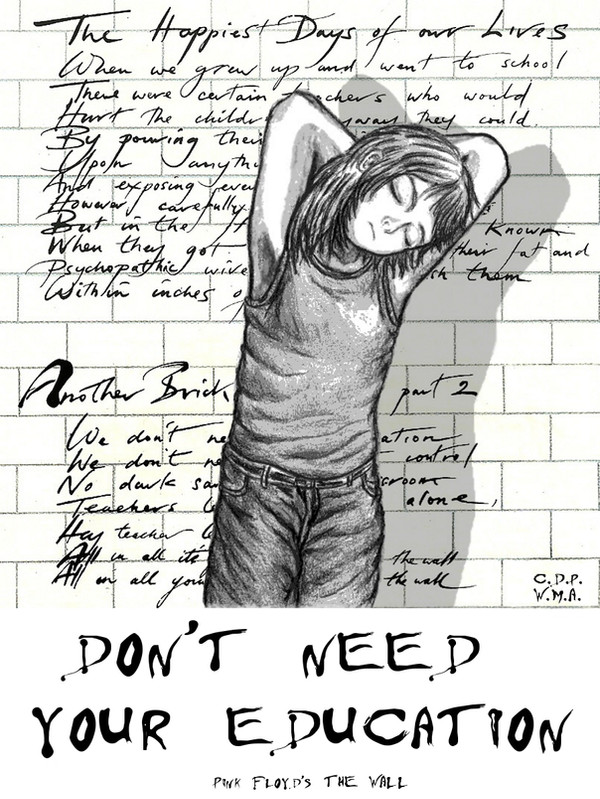 The Happiest Days of our Lives
When we grew up and went to school
There were certain teachers who would
Hurt the childr yway they could.
By pouring their
Upon anythi
And exposing every
However carefully
But in the Known
When they got their fat and
Psychopathic wive sh them
Within inches o
Another Brick part 2
We don't ne ation
We don't ne control
No dark sar sroom
Teachers alone,
Hey teacher
All in all its the wall
All in all your the wall
C.D.P.
W.M.A.
DON'T NEED
YOUR EDUCATION
PINK FLOYD'S THE WALL